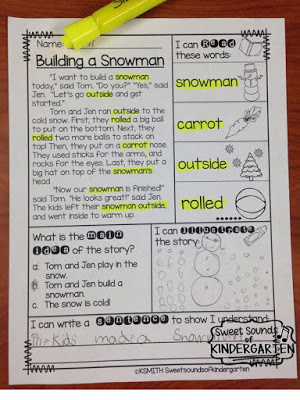 Name:
Building a Snowman
"I want to build a snowman
today," said Tom. "Do you?" "Yes," said
Jen. "Let's go outside and get
started."
Tom and Jen ran outside to the
cold snow. First, they rolled a big ball
to put on the bottom. Next, they
rolled two more balls to stack on
top! Then, they put on a carrot nose.
They used sticks for the arms, and
rocks for the eyes. Last, they put a
big hat on top of the snowman's
head.
"Now our snowman is finished!"
said Tom. "He looks great!" said Jen.
The kids left their snowman outside,
and went inside to warm up.
I can Read
these words:
snowman
carrot
outside
rolled
What is the main
idea of the story?
a. Tom and Jen play in the
snow.
b. Tom and Jen build a
snowman.
c. The snow is cold!
I can illustrate
the story.
I can write a sentence to show I understand.
The Kids made a Snow
Sweet Sounds
of
KINDERGARTEN
©KSMITH Sweetsoundsofkindergarten